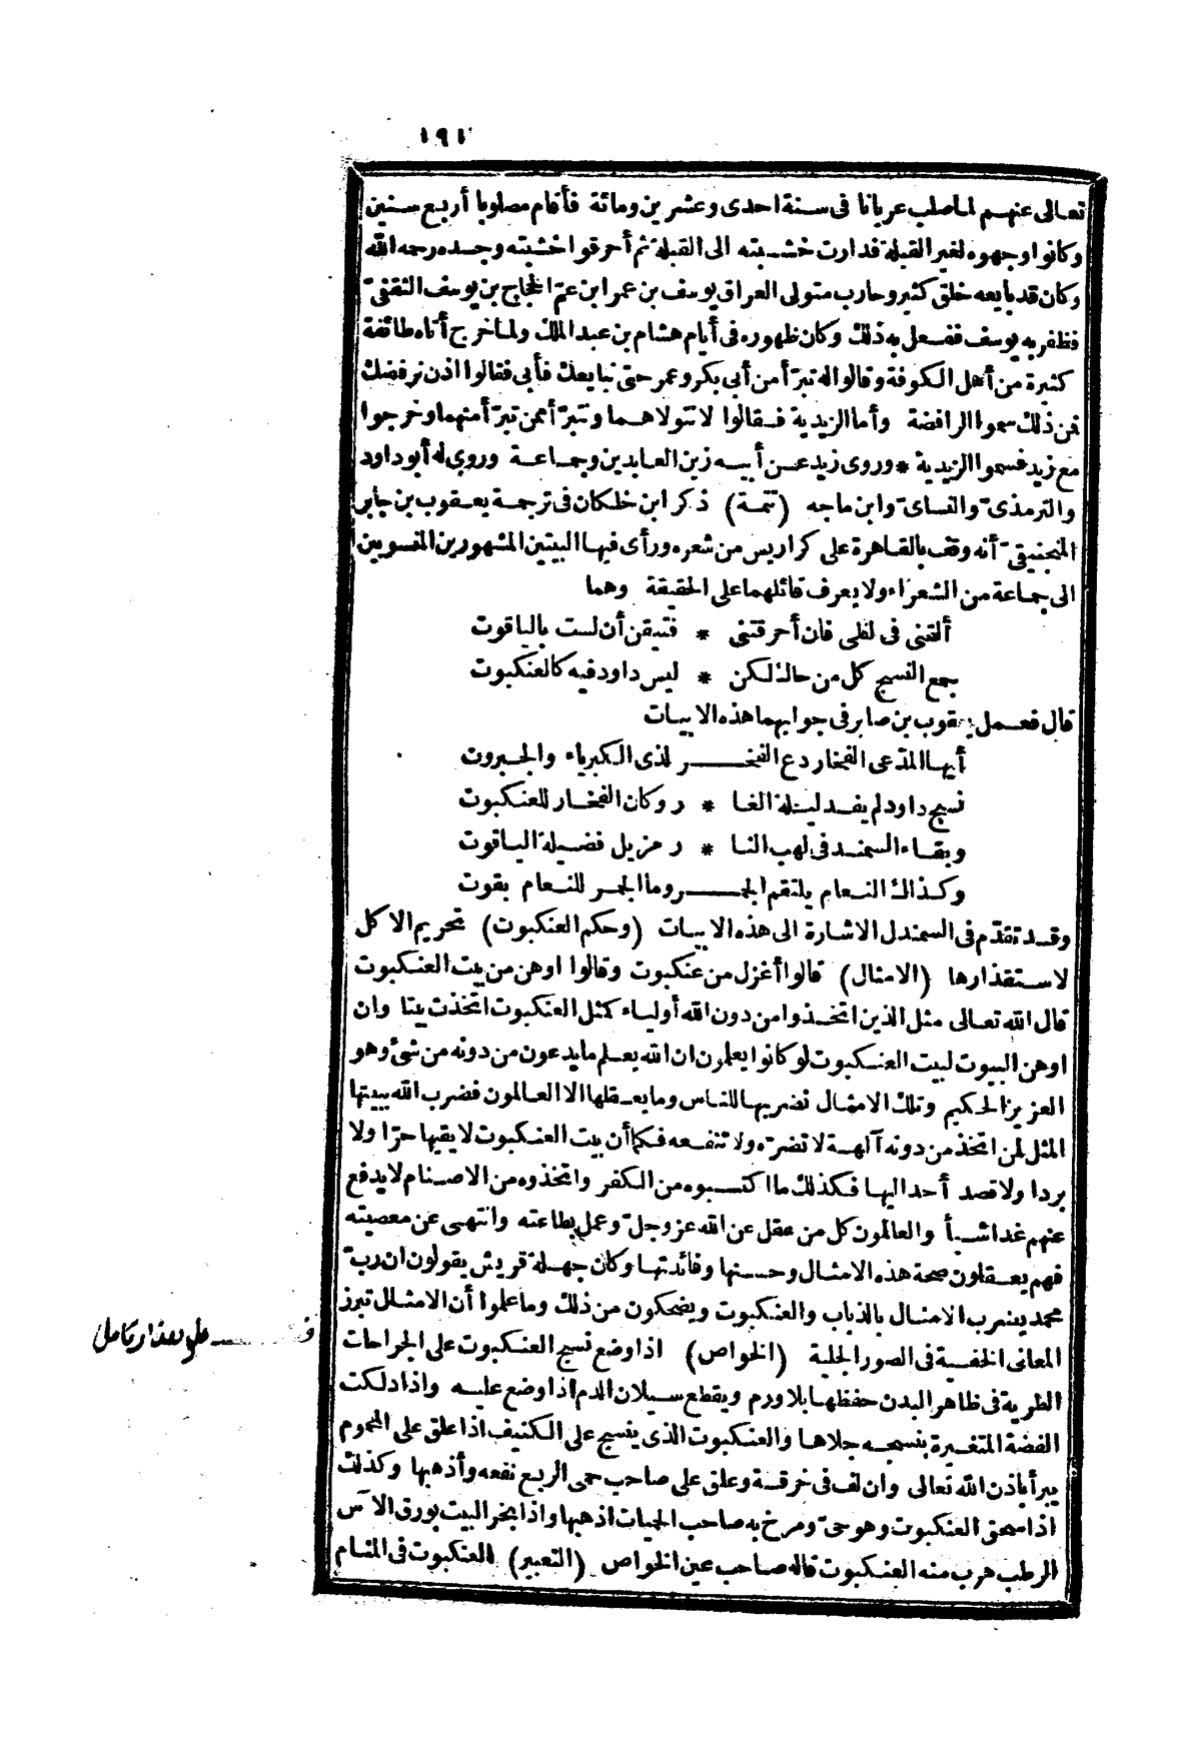 ١٩١
تعالى عنهم لما صلب عريانا فى سنة احدى وعشرين ومائة فأقام مصلوبا أربع سنين
وكانوا وجهوه لغير القبلة فدارت خشبته الى القبلة ثم أحرقوا خشبته وجسده رحمه الله
وكان قد بايعه خلق كثير وحارب متولى العراق يوسف بن عمر ابن عم الحجاج بن يوسف الثقفىّ
فظفر به يوسف ففعل به ذلك وكان ظهوره فى أيام هشام بن عبد الملك ولما خرج أتاه طائفة
كثيرة من أهل الكوفة وقالوا له تبرّأ من أبى بكر وعمر حتى نبايعك فأبى فقالوا اذن نرفضك
فمن ذلك سموا الرافضة وأما الزيدية فقالوا لا نتولاهما ونتبرّأ ممن تبرّأ منهما وخرجوا
مع زيد فسموا الزيدية * وروى زيد عن أبيه زين العابدين وجماعة وروى له أبو داود
والترمذىّ والنساىّ وابن ماجه (تتمة) ذكر ابن خلكان فى ترجمة يعقوب بن جابر
المنجنيقىّ أنه وقف بالقاهرة على كراريس من شعره ورأى فيها البيتين المشهورين المنسوبين
الى جماعة من الشعراء ولا يعرف قائلهما على الحقيقة وهما
ألقنى فى لظى فان أحرقتنى * فتيقن أن لست بالياقوت
جمع النسج كل من حاك لكن * ليس داود فيه كالعنكبوت
قال فعمل يعقوب بن صابر فى جوابهما هذه الابيات
أيها المدّعى الفخار دع الفخـــر لذى الكبرياء والجبروت
نسج داود لم يفد ليلة الغا * ر وكان الفخار للعنكبوت
وبقاء السمند فى لهب النا * ر مزيل فضيلة الياقوت
وكذاك النعام يلتقم الجمـــر وما الجمر للنعام بقوت
وقد تقدّم فى السمندل الاشارة الى هذه الابيات (وحكم العنكبوت) تحريم الاكل
لاستقذارها (الامثال) قالوا أغزل من عنكبوت وقالوا اوهن من بيت العنكبوت
قال الله تعالى مثل الذين اتخذوا من دون الله أولياء كمثل العنكبوت اتخذت بيتا وان
اوهن البيوت لبيت العنكبوت لو كانوا يعلمون ان الله يعلم ما يدعون من دونه من شئ وهو
العزيز الحكيم وتلك الامثال نضربها للناس وما يعقلها الا العالمون فضرب الله ببيتها
المثل لمن اتخذ من دونه آلهة لا تضرّه ولا تنفعه فكما أن بيت العنكبوت لا يقيها حرّا ولا
بردا ولا قصد أحد اليها فكذلك ما اكتسبوه من الكفر واتخذوه من الاصنام لا يدفع
عنهم غدا شيأ والعالمون كل من عقل عن الله عز وجلّ وعمل بطاعته وانتهى عن معصيته
فهم يعقلون صحة هذه الامثال وحسنها وفائدتها وكان جهلة قريش يقولون ان ربّ
محمد يضرب الامثال بالذباب والعنكبوت ويضحكون من ذلك وما علموا أن الامثال تبرز
المعانى الخفية فى الصور الجلية (الخواص) اذا وضع نسج العنكبوت على الجراحات
الطرية فى ظاهر البدن حفظها بلا ورم ويقطع سيلان الدم اذا وضع عليه واذا دلكت
الفضة المتغيرة بنسجه جلاها والعنكبوت الذى ينسج على الكنيف اذا علق على المحموم
يبرأ باذن الله تعالى وان لف فى خرقة وعلق على صاحب حمى الربع نفعه وأذهبها وكذلك
اذا سحق العنكبوت وهو حىّ ومرخ به صاحب الحميات اذهبها واذا بخر البيت بورق الآس
الرطب هرب منه العنكبوت قاله صاحب عين الخواص (التعبير) العنكبوت فى المنام